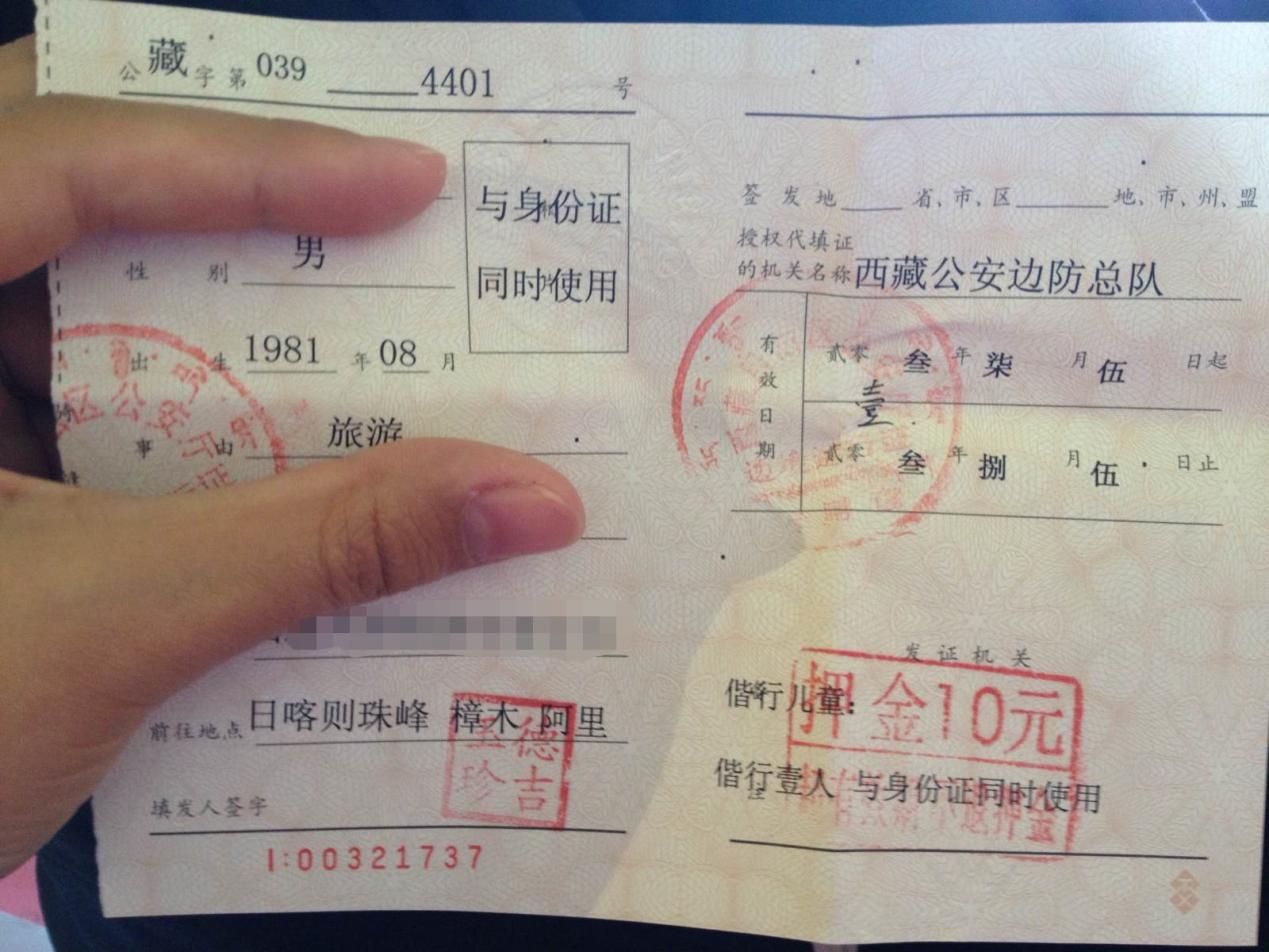 公藏字第039 4401 号
与身份证
同时使用
性别 男
出生 1981 年 08 月
事由 旅游
前往地点 日喀则珠峰 樟木 阿里
填发人签字
德吉
珍
I:00321737
签发地 省、市、区 地、市、州、盟
授权代填证
的机关名称 西藏公安边防总队
有效日期
贰零壹叁年柒月伍日起
贰零 叁年捌月伍日止
发证机关
押金10元
偕行儿童:
偕行壹人 与身份证同时使用